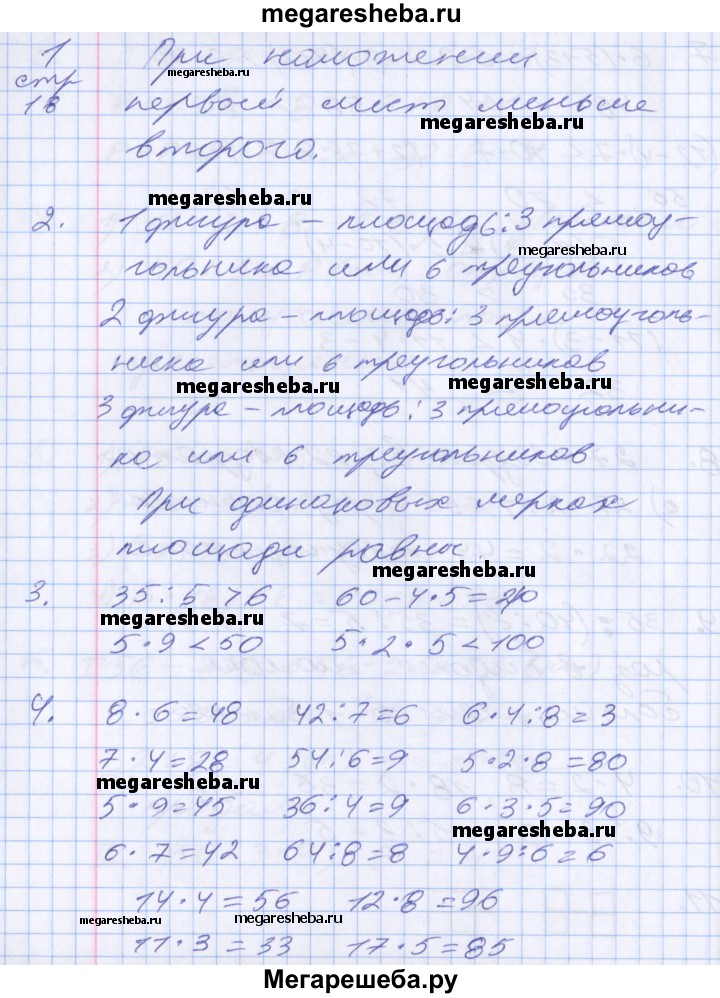 megaresheba.ru
1 При наложении
megaresheba.ru
стр первый лист меньше
18
megaresheba.ru
второго.
megaresheba.ru
2. 1 фигура – площадь: 3 прямоу-
megaresheba.ru
гольника или 6 треугольников
2 фигура – площадь: 3 прямоуголь-
ника или 6 треугольников
megaresheba.ru megaresheba.ru
3 фигура – площадь: 3 прямоугольни-
ка или 6 треугольников
При одинаковых мерках
площади равны.
megaresheba.ru
3. 35:5>6 60-4·5=40
megaresheba.ru
5·9<50 5·2·5<100
4. 8·6=48 42:7=6 6·4:8=3
7·4=28 54:6=9 5·2·8=80
megaresheba.ru
5·9=45 36:4=9 6·3·5=90
megaresheba.ru
6·7=42 64:8=8 4·9:6=6
14·4=56 12·8=96
megaresheba.ru megaresheba.ru
11·3=33 17·5=85
Мегарешеба.ру